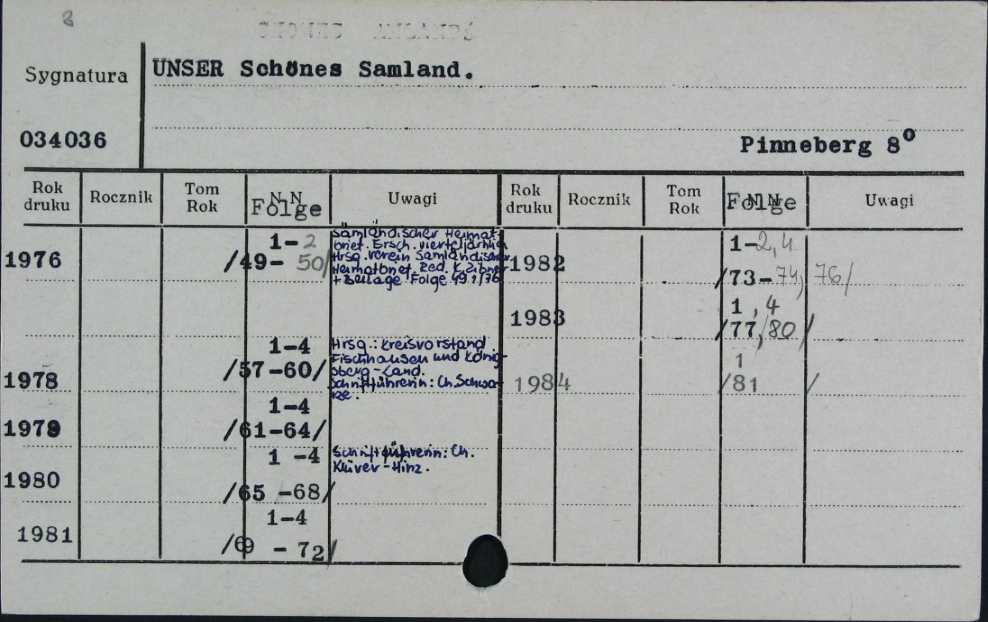 8
Sygnatura
UNSER Schönes Samland.
034036
Pinneberg 8°
Rok druku Rocznik Tom Rok NN Folge Uwagi Rok druku Rocznik Tom Rok NN Folge Uwagi
1976
1-2
/49- 50/
Samländischer Heimat-
bnef. Ersch. vierteljährlich
Hrsg. Verein Samländischer
Heimatbnef. Red. K.
+ Beilage Folge 49 1/76
1978
1-4
/57-60/
Hrsg.: Kreisvorstand
Fischhausen und König-
sberg-Land.
Schriftführerin: Ch. Schwar-
ze.
1979
1-4
/61-64/
1980
1 -4
/65 -68/
Schriftführerin: Ch.
Klüver-Hinz.
1981
1-4
/69 - 72/
1982
1-2,4
/73-74, 76/
1983
1 , 4
/77,80 /
1984
1
/81 /